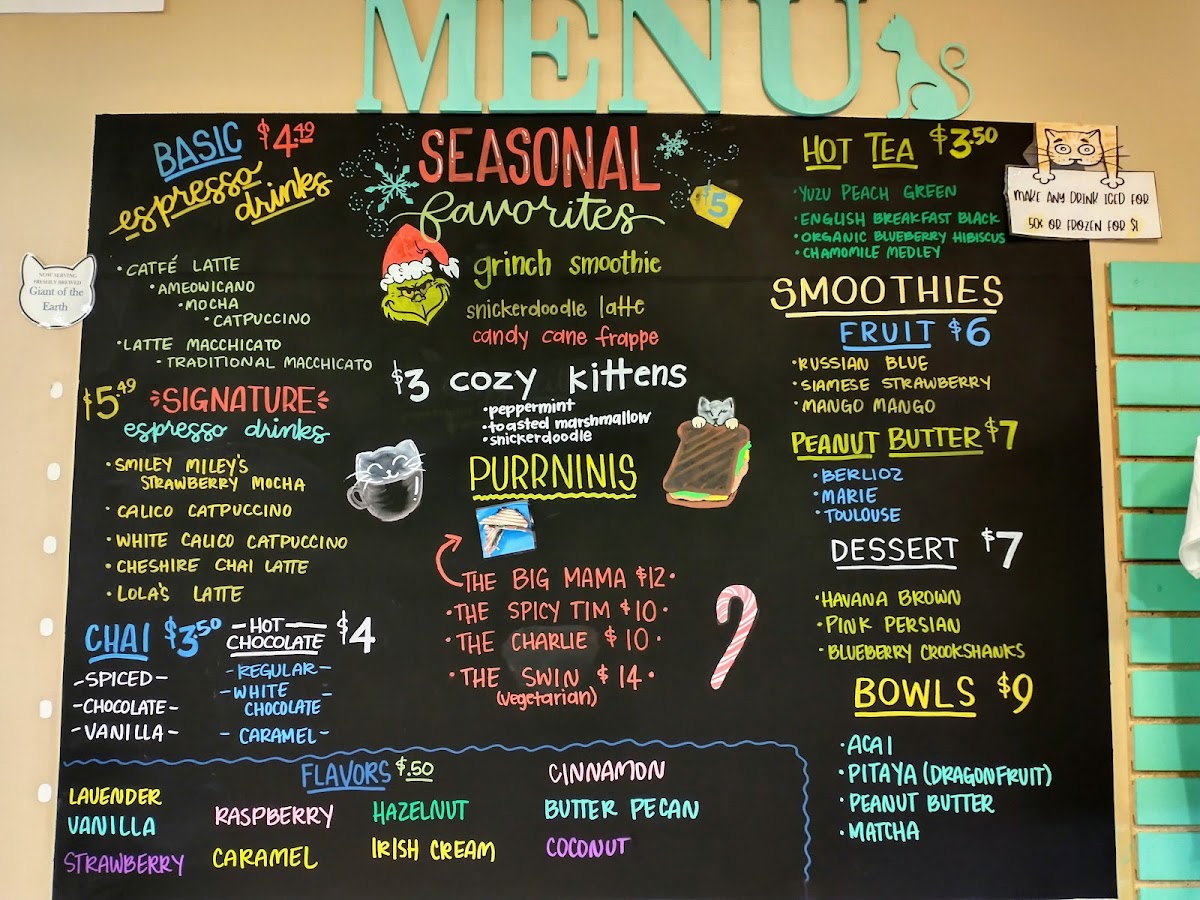 MENU
BASIC $4.49
espresso
drinks
• CATFÉ LATTE
• AMEOWICANO
• MOCHA
• CATPUCCINO
• LATTE MACCHICATO
• TRADITIONAL MACCHICATO
$5.49 SIGNATURE
espresso drinks
• SMILEY MILEY'S
STRAWBERRY MOCHA
• CALICO CATPUCCINO
• WHITE CALICO CATPUCCINO
• CHESHIRE CHAI LATTE
• LOLA'S LATTE
CHAI $3.50
-SPICED-
-CHOCOLATE-
-VANILLA-
-HOT-
CHOCOLATE $4
-REGULAR-
-WHITE
CHOCOLATE-
-CARAMEL-
SEASONAL
favorites
$5
grinch smoothie
snickerdoodle latte
candy cane frappe
$3 cozy kittens
• peppermint
• toasted marshmallow
• snickerdoodle
PURRNINIS
THE BIG MAMA $12•
•THE SPICY TIM $10•
•THE CHARLIE $10•
•THE SWIN $14•
(vegetarian)
HOT TEA $3.50
• YUZU PEACH GREEN
• ENGLISH BREAKFAST BLACK
• ORGANIC BLUEBERRY HIBISCUS
• CHAMOMILE MEDLEY
SMOOTHIES
FRUIT $6
• RUSSIAN BLUE
• SIAMESE STRAWBERRY
• MANGO MANGO
PEANUT BUTTER $7
• BERLIOZ
• MARIE
• TOULOUSE
DESSERT $7
• HAVANA BROWN
• PINK PERSIAN
• BLUEBERRY CROOKSHANKS
BOWLS $9
• ACAI
• PITAYA (DRAGONFRUIT)
• PEANUT BUTTER
• MATCHA
FLAVORS $.50
LAVENDER
VANILLA
STRAWBERRY
RASPBERRY
CARAMEL
HAZELNUT
IRISH CREAM
CINNAMON
BUTTER PECAN
COCONUT
MAKE ANY DRINK ICED FOR
50¢ OR FROZEN FOR $1
NOW SERVING
FRESHLY BREWED
Giant of the
Earth